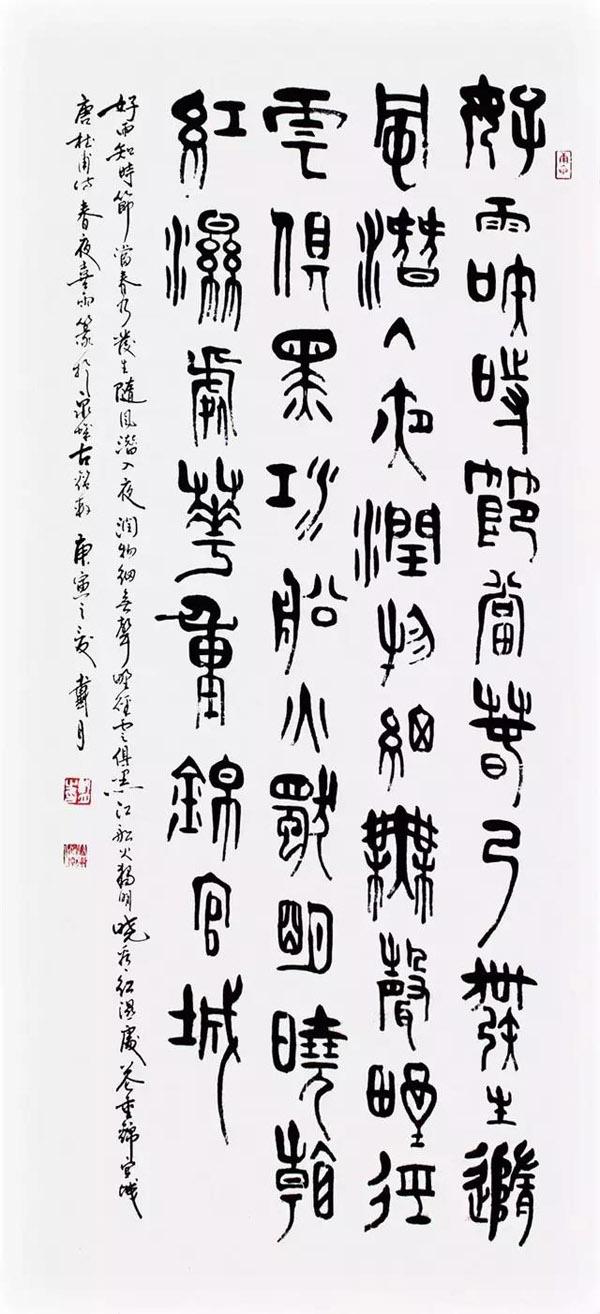 好雨知時節當春乃發生隨
風潛入夜潤物細無聲野徑
雲俱黑江船火獨明曉看
紅濕處華重錦官城
好雨知時節當春乃發生隨風潛入夜潤物細無聲野徑雲俱黑江船火獨明曉看紅濕處花重錦官城
唐杜甫詩春夜喜雨篆於泉城古 庚寅之夏 戴月